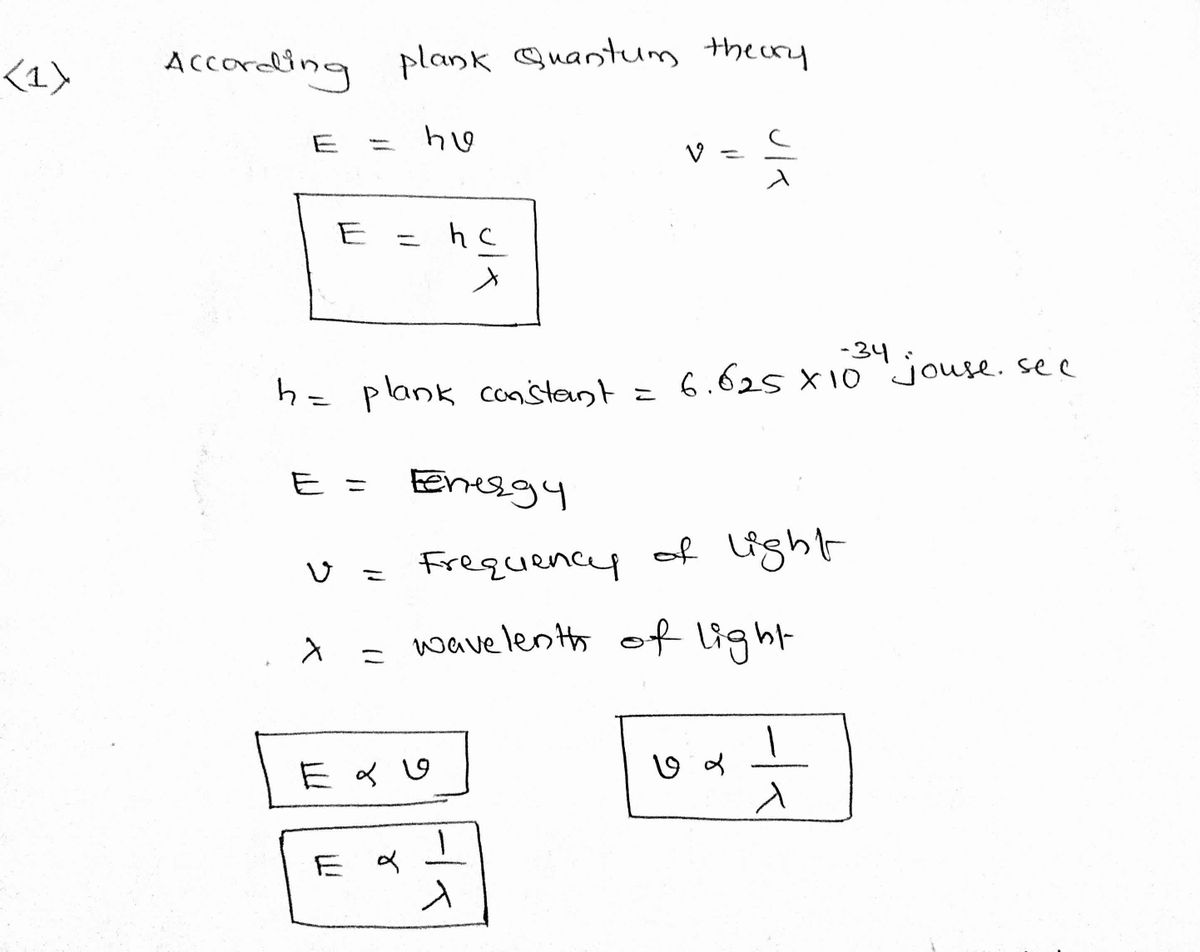 <1> According plank Quantum theory
E = hν ν = c/λ
E = h c/λ
h = plank constant = 6.625 × 10⁻³⁴ jouse. sec
E = Eenergy
ν = Frequency of light
λ = wavelenth of light
E ∝ ν ν ∝ 1/λ
E ∝ 1/λ